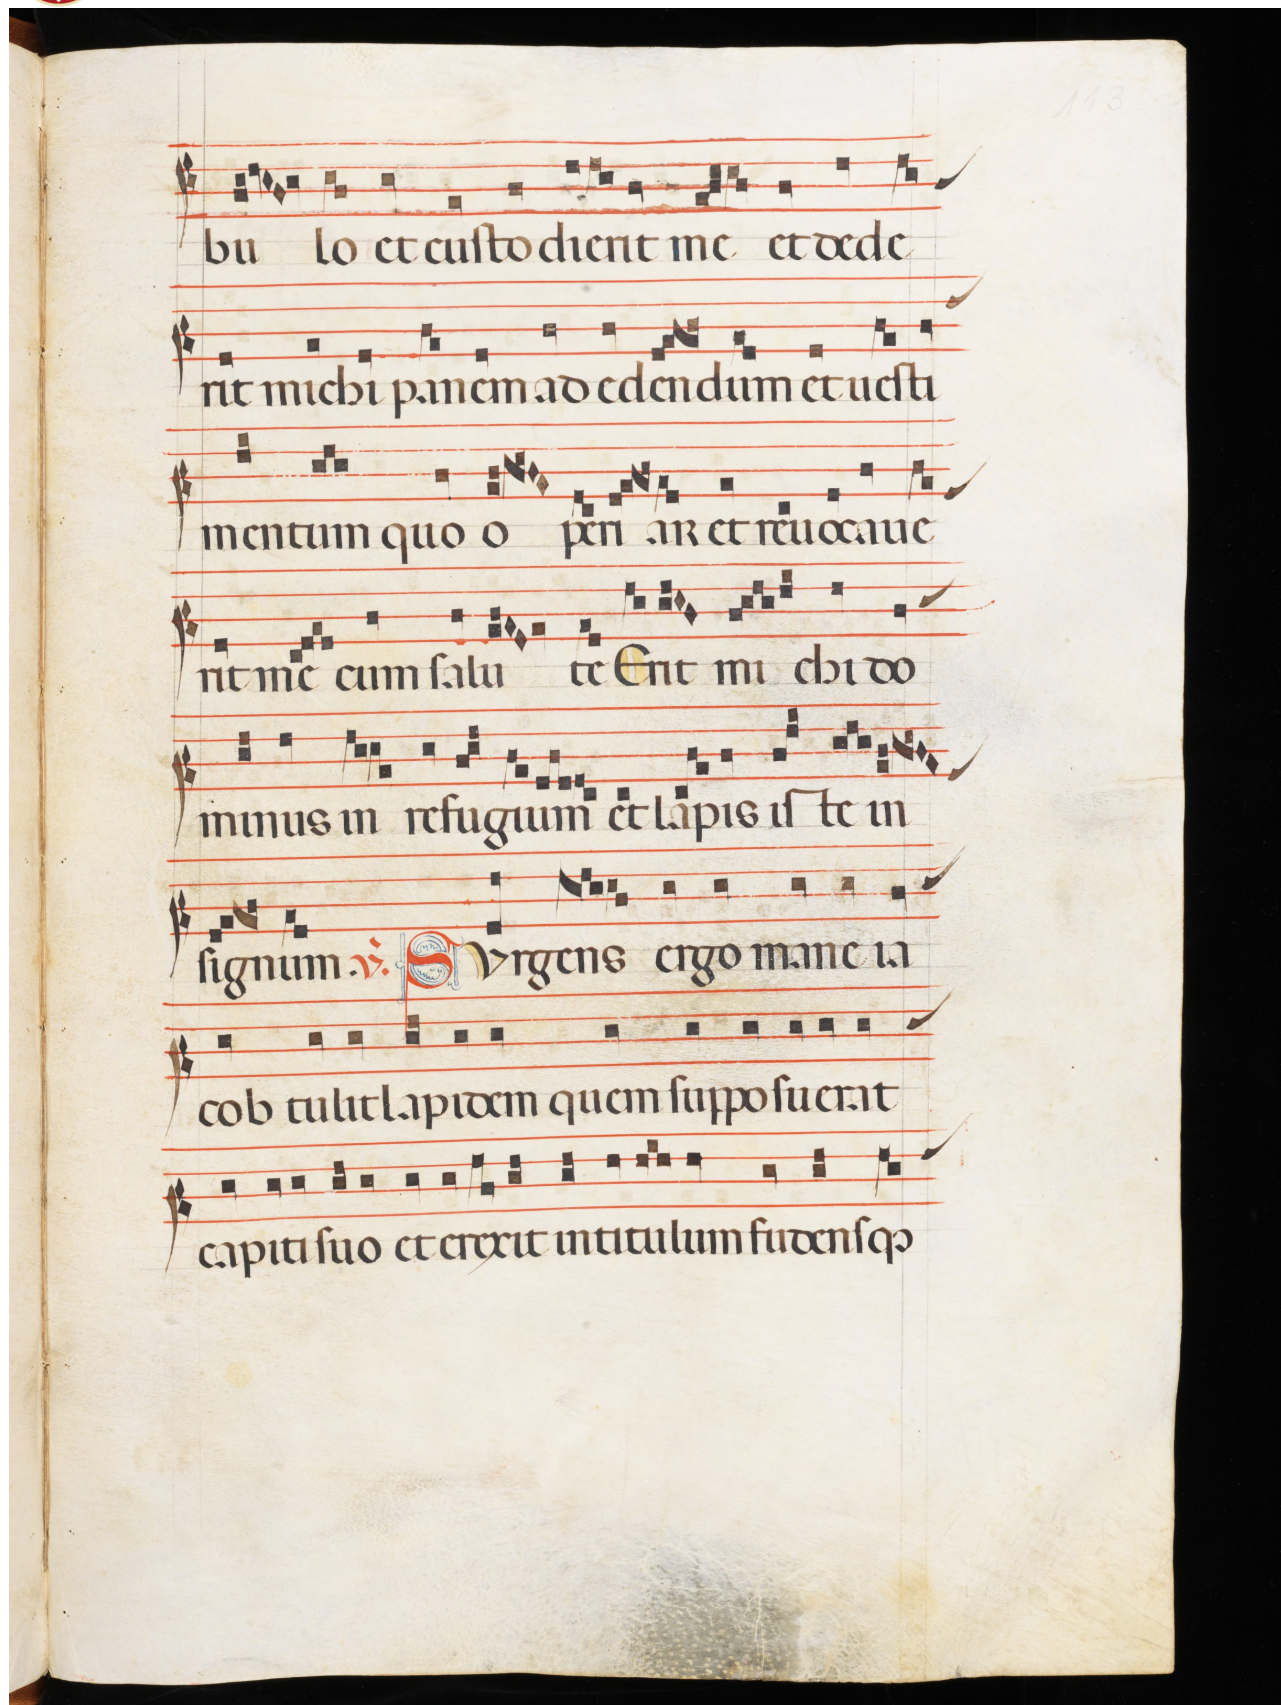 113
bu lo et custo dierit me et dede
rit michi panem ad edendum et uesti
mentum quo o peri ar et reuocaue
rit me cum salu te Erit mi chi do
minus in refugium et lapis is te in
signum .v. SVrgens ergo mane ia
cob tulit lapidem quem supposuerat
capiti suo et erexit intitulum fudensqꝫ